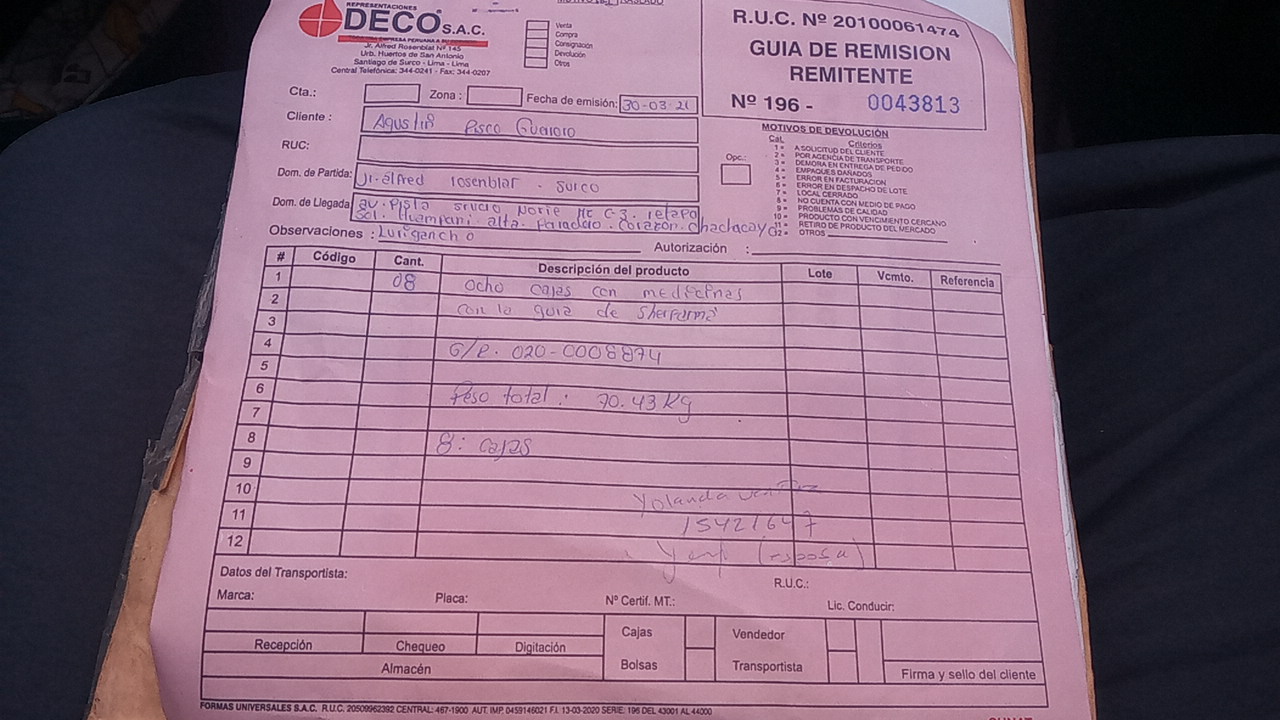 REPRESENTACIONES
DECO S.A.C.
Jr. Alfred Rosenblat Nº 145
Urb. Huertos de San Antonio
Santiago de Surco - Lima - Lima
Central Telefónica: 344-0241 - Fax: 344-0207
Venta
Compra
Consignación
Devolución
Otros
R.U.C. Nº 20100061474
GUIA DE REMISION
REMITENTE
Nº 196 - 0043813
Cta.: Zona : Fecha de emisión: 30-03-21
Cliente : Agustin Pisco
RUC:
Dom. de Partida: Jr. alfred rosenblat - surco
Dom. de Llegada: av. Pista Norte Mz C-3.
Sol. Huampani. alta. Paradero. corazon. chaclacayo
Observaciones : Lurigancho Autorización :
Opc.:
MOTIVOS DE DEVOLUCIÓN
Cat. Criterios
1 = A SOLICITUD DEL CLIENTE
2 = POR AGENCIA DE TRANSPORTE
3 = DEMORA EN ENTREGA DE PEDIDO
4 = EMPAQUES DAÑADOS
5 = ERROR EN FACTURACION
6 = ERROR EN DESPACHO DE LOTE
7 = LOCAL CERRADO
8 = NO CUENTA CON MEDIO DE PAGO
9 = PROBLEMAS DE CALIDAD
10 = PRODUCTO CON VENCIMIENTO CERCANO
11 = RETIRO DE PRODUCTO DEL MERCADO
12 = OTROS
# Código Cant. Descripción del producto Lote Vcmto. Referencia
1 08 ocho cajas con medicinas
2 con la guia de Sherfarma
3
4 G/R. 020-0008874
5
6 Peso total : 70.43 Kg
7
8 8: cajas
9
10 Yolanda
11 15421647
12 (esposa)
Datos del Transportista: R.U.C.:
Marca: Placa: Nº Certif. MT.: Lic. Conducir:
Recepción Chequeo Digitación
Almacén
Cajas
Bolsas
Vendedor
Transportista
Firma y sello del cliente
FORMAS UNIVERSALES S.A.C. R.U.C. 20509962392 CENTRAL: 467-1900 AUT. IMP. 0459146021 F.I. 13-03-2020 SERIE: 196 DEL 43001 AL 44000